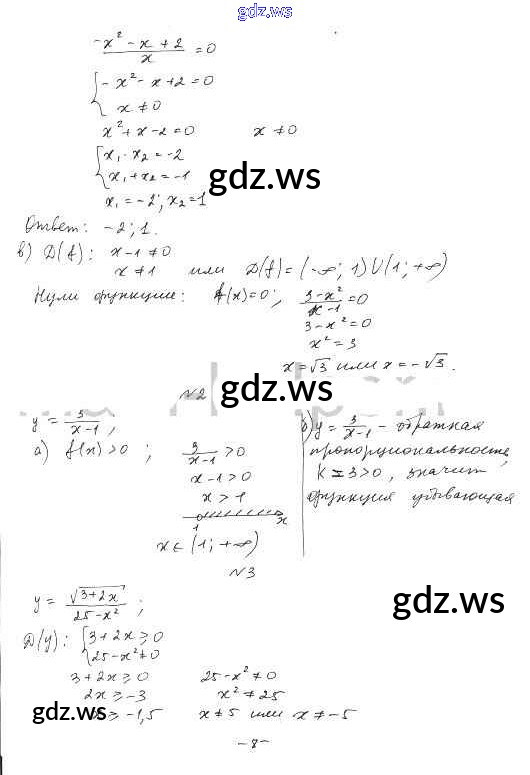 gdz.ws
(-x² - x + 2)/x = 0
{ -x² - x + 2 = 0
x ≠ 0
x² + x - 2 = 0 x ≠ 0
{ x₁ · x₂ = -2
x₁ + x₂ = -1
gdz.ws
x₁ = -2; x₂ = 1
Ответ: -2; 1.
в) D(f): x - 1 ≠ 0
x ≠ 1 или D(f) = (-∞; 1) ∪ (1; +∞)
Нули функции: f(x) = 0; (3 - x²)/(x - 1) = 0
3 - x² = 0
x² = 3
x = √3 или x = -√3.
№2
gdz.ws
y = 3/(x-1);
а) f(x) > 0; 3/(x-1) > 0
x - 1 > 0
x > 1
1 x
x ∈ (1; +∞)
б) y = 3/(x-1) - обратная
пропорциональность,
k = 3 > 0, значит
функция убывающая
№3
y = √(3+2x)/(25-x²);
gdz.ws
D(y): { 3 + 2x ≥ 0
25 - x² ≠ 0
3 + 2x ≥ 0 25 - x² ≠ 0
2x ≥ -3 x² ≠ 25
gdz.ws
x ≥ -1,5 x ≠ 5 или x ≠ -5
- 8 -